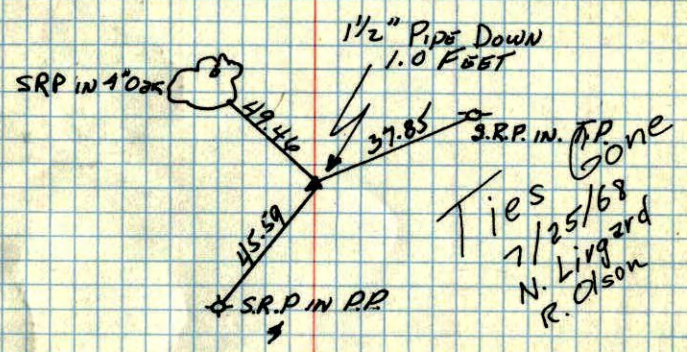 1½" PIPE DOWN
1.0 FEET
SRP IN 4" OAK
49.46
37.85
S.R.P. IN. T.P.
45.59
S.R.P IN P.P.
Ties Gone
7/25/68
N. Lirgard
R. Olson